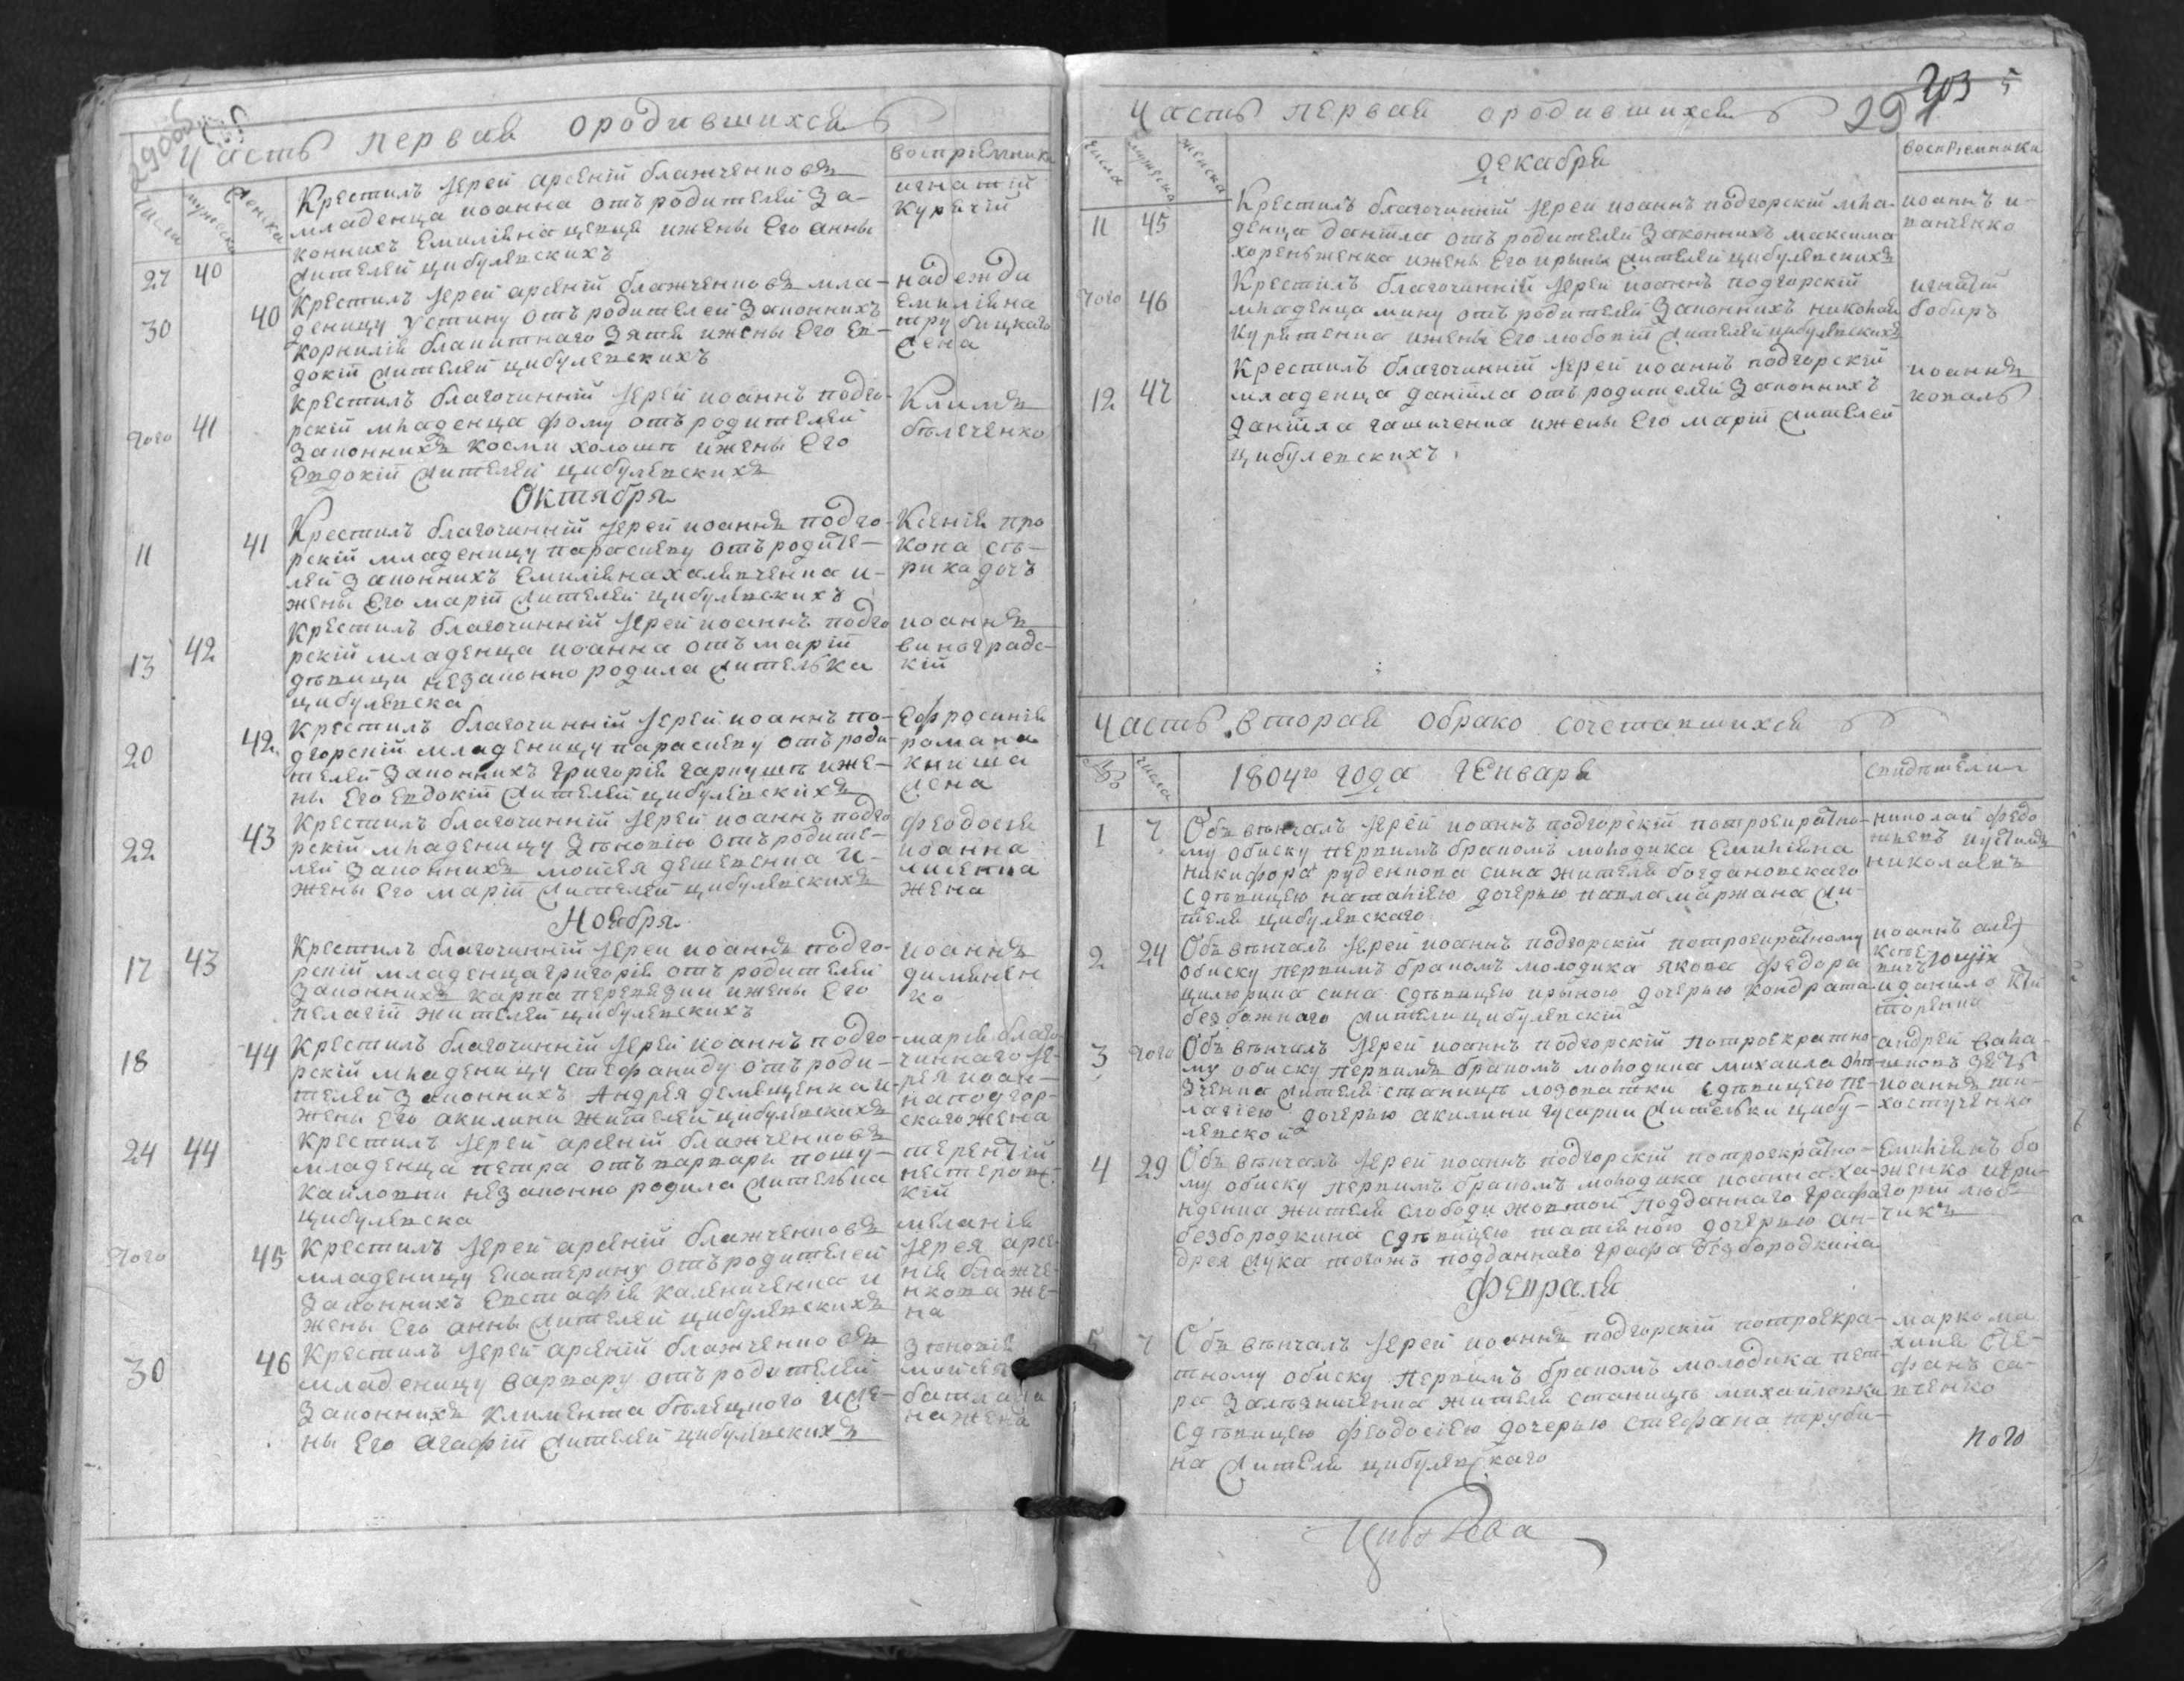 Часть первая ородившихся
числа мужеска женска воспрiемники
Крестилъ Iерей арсенiй блажченковъ
младенца иоанна отъ родителей за-
конныхъ Емилiяна цепця ижены Его анны
жителей цибулевскихъ
27 40
игнатiй
курячiй
Крестилъ Iерей арсенiй блажченковъ мла-
деницу устину отъ родителей законнихъ
корнилiя блакитнаго зятя ижены Его Ев-
докiи жителей цибулевскихъ
30 40
надежда
Емилiяна
трубицкаго
жена
Крестилъ благочиннiй Iерей иоаннъ подго-
рскiй младенца фому отъ родителей
законнихъ косми холоши ижены Его
Евдокiи жителей цибулевскихъ
того 41
Климъ
бѣлеченко
Октября
Крестилъ благочиннiй Iерей иоаннъ подго-
рскiй младеницу параскеву отъ родите-
лей законнихъ Емилiяна халявченка и-
жены Его марiи жителей цибулевскихъ
11 41
Ксенiя про
копа сѣ-
рика дочъ
Крестилъ благочиннiй Iерей иоаннъ подго
рскiй младенца иоанна отъ марiи
дѣвици незаконно родила жителька
цибулевска
13 42
иоаннъ
виноградс-
кiй
Крестилъ благочиннiй Iерей иоаннъ по-
дгорскiй младеницу параскеву отъ роди-
телей законнихъ григорiя гаркуши иже-
ны Его Евдокiи жителей цибулевскихъ
20 42
Ефросинiя
романа
книша
жена
Крестилъ благочиннiй Iерей иоаннъ подго
рскiй младеницу зѣновiю отъ родите-
лей законнихъ мойсея дешевенка и-
жены Его марiи жителей цибулевскихъ
22 43
феодосiя
иоанна
лисенка
жена
Ноября
Крестилъ благочиннiй Iерей иоаннъ подго-
рскiй младенца григорiя отъ родителей
законнихъ карпа перевезни ижены Его
пелагiи жителей цибулевскихъ
17 43
иоаннъ
диминен
ко
Крестилъ благочиннiй Iерей иоаннъ подго-
рскiй младеницу стефаниду отъ роди-
телей законнихъ Андрея демещенка и-
жены Его акилини жителей цибулевскихъ
18 44
марiя благо
чиннаго Iе-
рея иоан-
на подгор-
скаго жена
Крестилъ Iерей арсенiй блажченковъ
младенца петра отъ варвари пошу-
кайловни незаконно родила жителька
цибулевска
24 44
терентiй
нестеровс-
кiй
Крестилъ Iерей арсенiй блажченковъ
младеницу Екатерину отъ родителей
законнихъ Евстафiя каленичeнка и
жены Его анны жителей цибулевскихъ
того 45
меланiя
Iерея арсе-
нiя блажче-
нкова же-
на
Крестилъ Iерей арсенiй блажченковъ
младеницу варвару отъ родителей
законнихъ климента бѣлецкого иже-
ны Его агафiи жителей цибулевскихъ
30 46
зѣновiя
мойсея
на жена
Часть первая ородившихся
числа мужеска женска воспрiемники
декабря
Крестилъ благочиннiй Iерей иоаннъ подгорскiй мла-
денца данiила отъ родителей законнихъ максима
хоренженка ижены Его ирыны жителей цибулевскихъ
11 45
иоаннъ и-
ванченко
Крестилъ благочиннiй Iерей иоаннъ подгорскiй
младенца мину отъ родителей законнихъ николая
курятенка ижены Его любовiи жителей цибулевскихъ
того 46
игнатiй
бобиръ
Крестилъ благочиннiй Iерей иоаннъ подгорскiй
младенца данiила отъ родителей законнихъ
данiила гашиченка ижены Его марiи жителей
цибулевскихъ
12 47
иоаннъ
коваль
Часть вторая обрако сочетавшихся
№ числа 1804го года генваря свидѣтели
1 7 Обвѣнчалъ Iерей иоаннъ подгорскiй потроекратно-
му обиску первимъ бракомъ молодика Емилiяна
никифора руденкова сина жителя богдановскаго
сдѣвицею наталiею дочерью павла маржана жи-
теля цибулевскаго
николай федо
николаевъ
2 24 Обвѣнчалъ Iерей иоаннъ подгорскiй потроекратному
обиску первимъ бракомъ молодика якова федора
цилюрика сина сдѣвицею ирыною дочерью кондрата
безбажнаго жители цибулевскiи
иоаннъ алек
сее
вичъ
иданило
3 того Обвѣнчалъ Iерей иоаннъ подгорскiй потроекратно
му обиску первимъ бракомъ молодика михаила
зченка жителя станици лозоватки сдѣвицею пе-
лагiею дочерью акилини гусарки жительки цибу-
левской
андрей
иоаннъ ши-
хостученко
4 29 Обвѣнчалъ Iерей иоаннъ подгорскiй потроекратно-
му обиску первимъ бракомъ молодика иоанна ха-
нденка жителя слободи жовтой подданнаго графа
безбородкина сдѣвицею татiяною дочерью ан-
дрея жука тогожъ подданнаго графа безбородкина
Емилiянъ бо
женко игри-
горiй люб-
чикъ
февраля
5 7 Обвѣнчалъ Iерей иоаннъ подгорскiй потроекра-
тному обиску первимъ бракомъ молодика пет-
ра залѣзниченка жителя станицѣ михайловки
сдѣвицею феодосiею дочерью стефана труби-
на жителя цибулевскаго
марко ма
фанъ са-
вченко
того